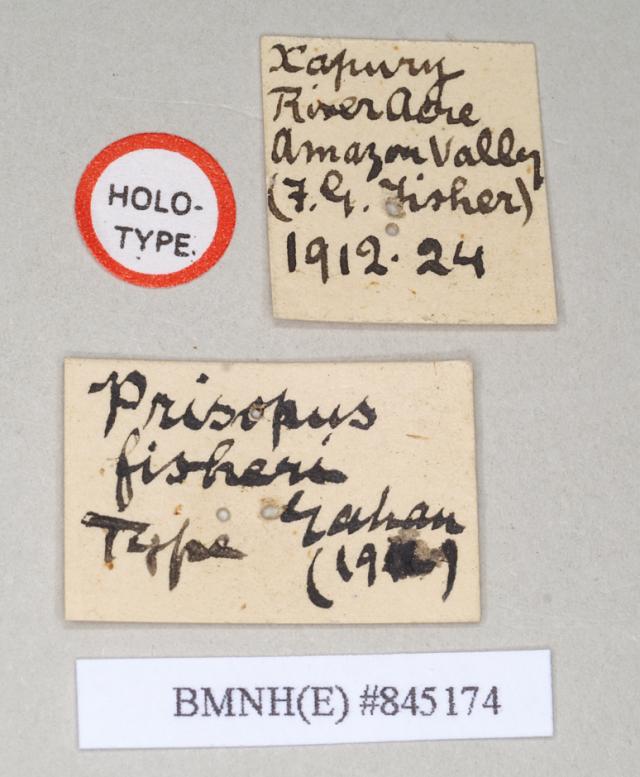 Xapury
River Acre
Amazon Valley
(F. G. Fisher)
1912. 24
HOLO-
TYPE.
Prisopus
fisheri
Gahan
Type
BMNH(E) #845174